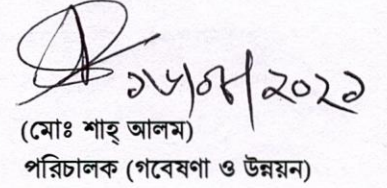 ২০২১
(মোঃ শাহ্ আলম)
পরিচালক (গবেষণা ও উন্নয়ন)